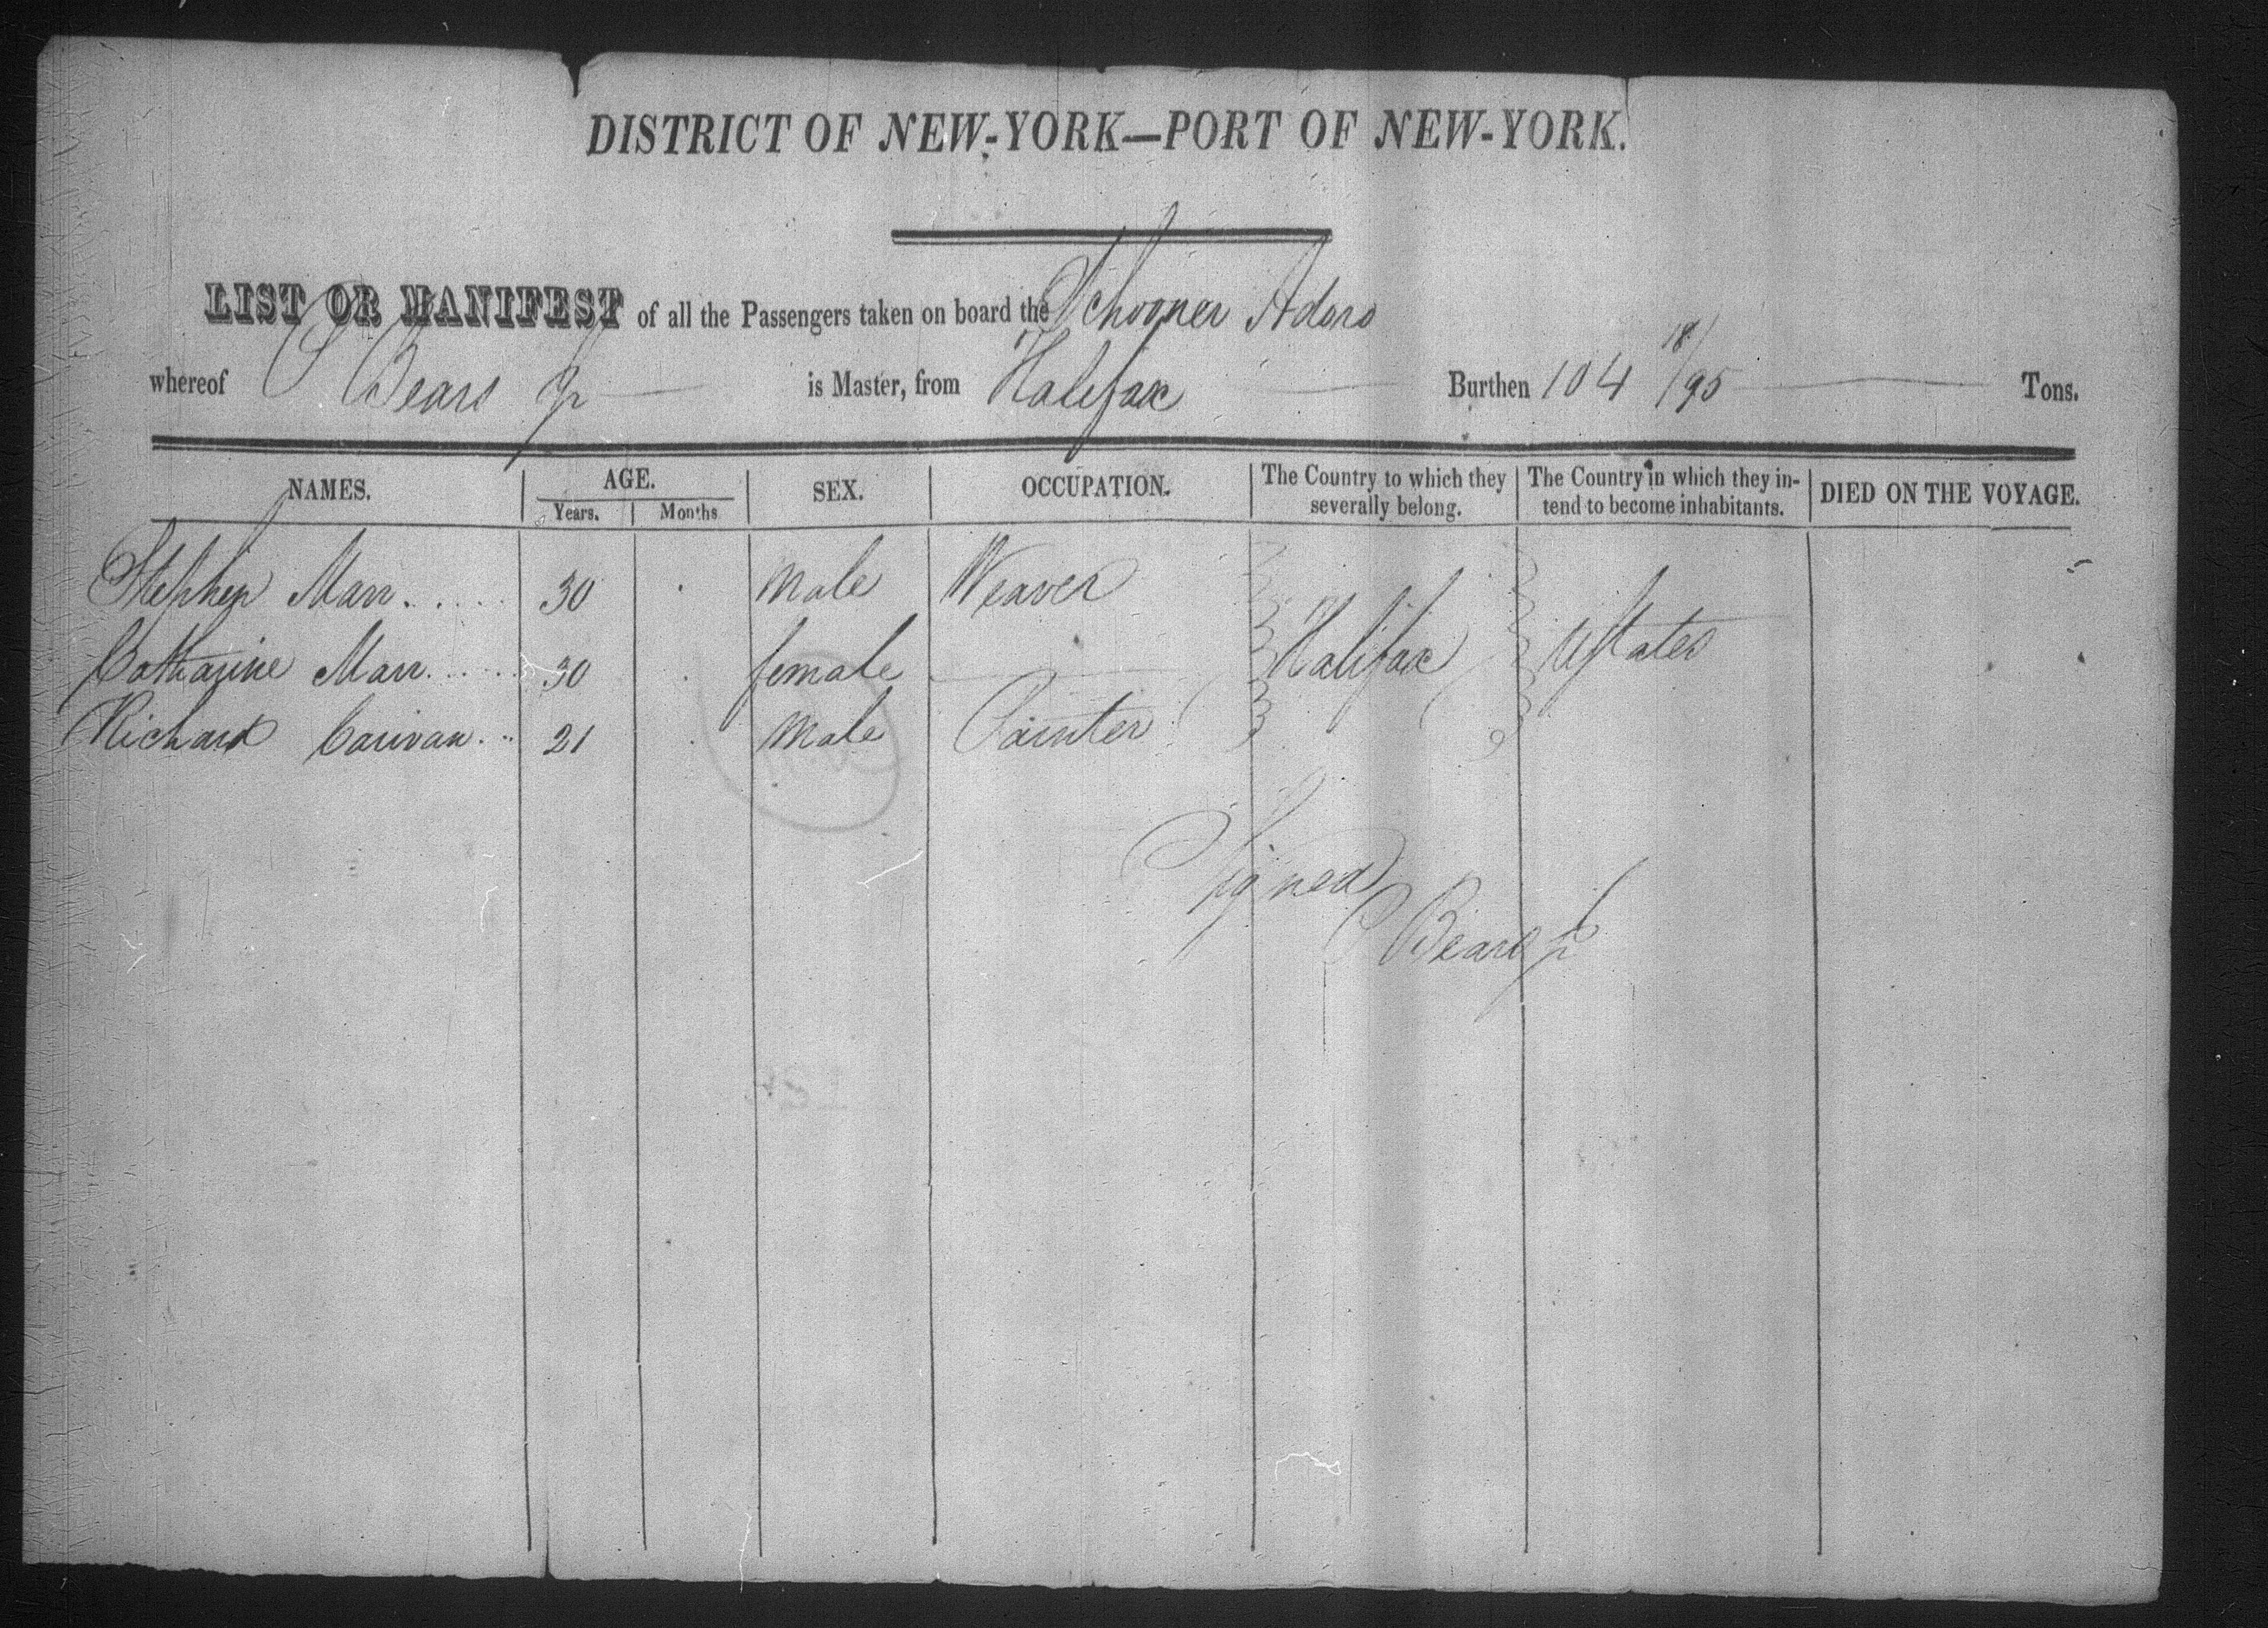 DISTRICT OF NEW-YORK—PORT OF NEW-YORK.
LIST OR MANIFEST of all the Passengers taken on board the Schooner
whereof Bears Jr is Master, from Halifax Burthen 104 18/95 Tons.
NAMES. AGE. SEX. OCCUPATION. The Country to which they severally belong. The Country in which they intend to become inhabitants. DIED ON THE VOYAGE.
Years. Months
Stephen Marr..... 30 Male Weaver
Catharine Marr..... 30 female Halifax UStates
Richard 21 Male Painter
Signed
Bears Jr